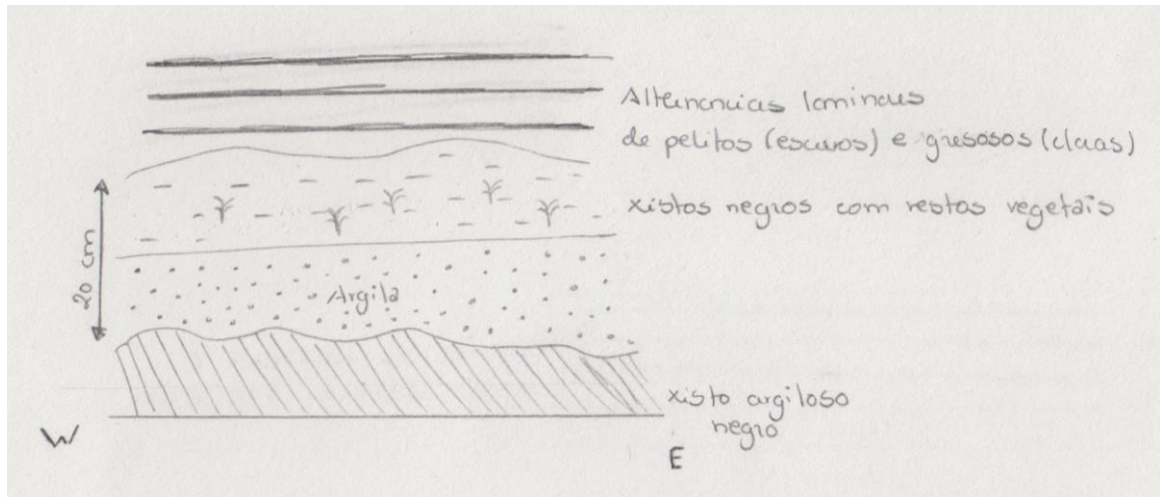 Alternancias laminaus
de pelitos (escuros) e gresosos (claros)
xistos negros com restos vegetais
20 cm
Argila
xisto argiloso
negro
W
E